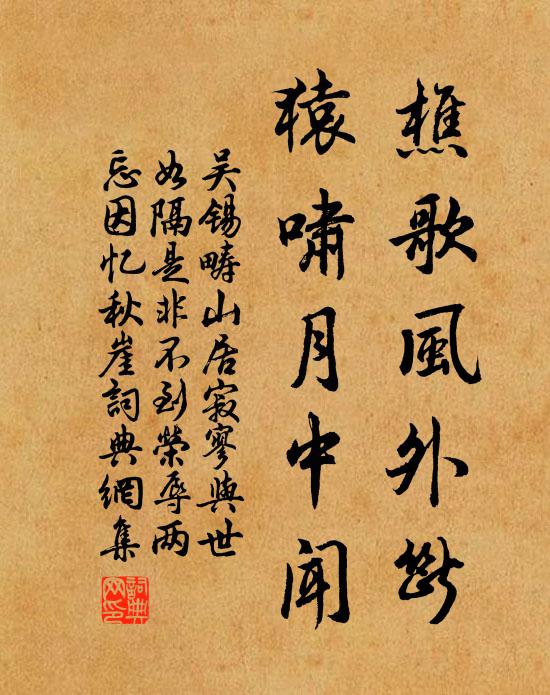 樵歌風外斷
猿嘯月中聞
吴锡畴山居寂寥與世
如隔是非不到榮辱两
忘因忆秋崖詞典網集
詞典網印